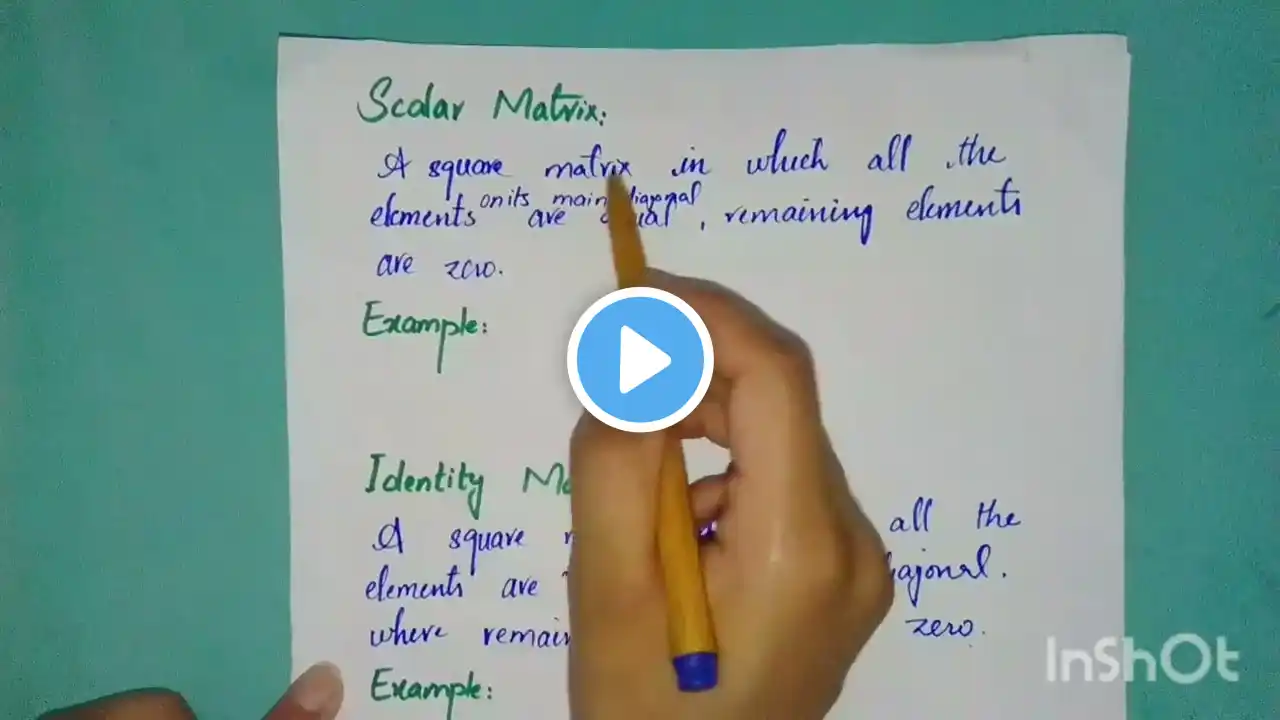 Scalar Matrix:
A square matrix in which all the
on its main diagonal
elements are equal, remaining elements
are zero.
Example:
Identity
A square all the
elements are
where zero.
Example:
InShOt